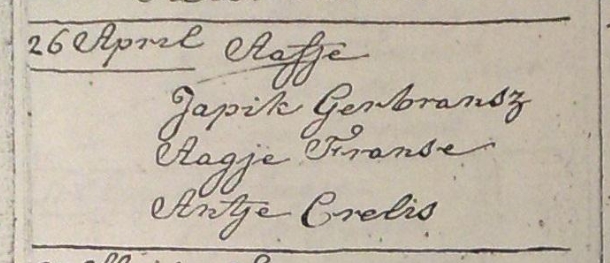 26 April Aafje
Japik Gerbransz
Aagje Franse
Antje Crelis